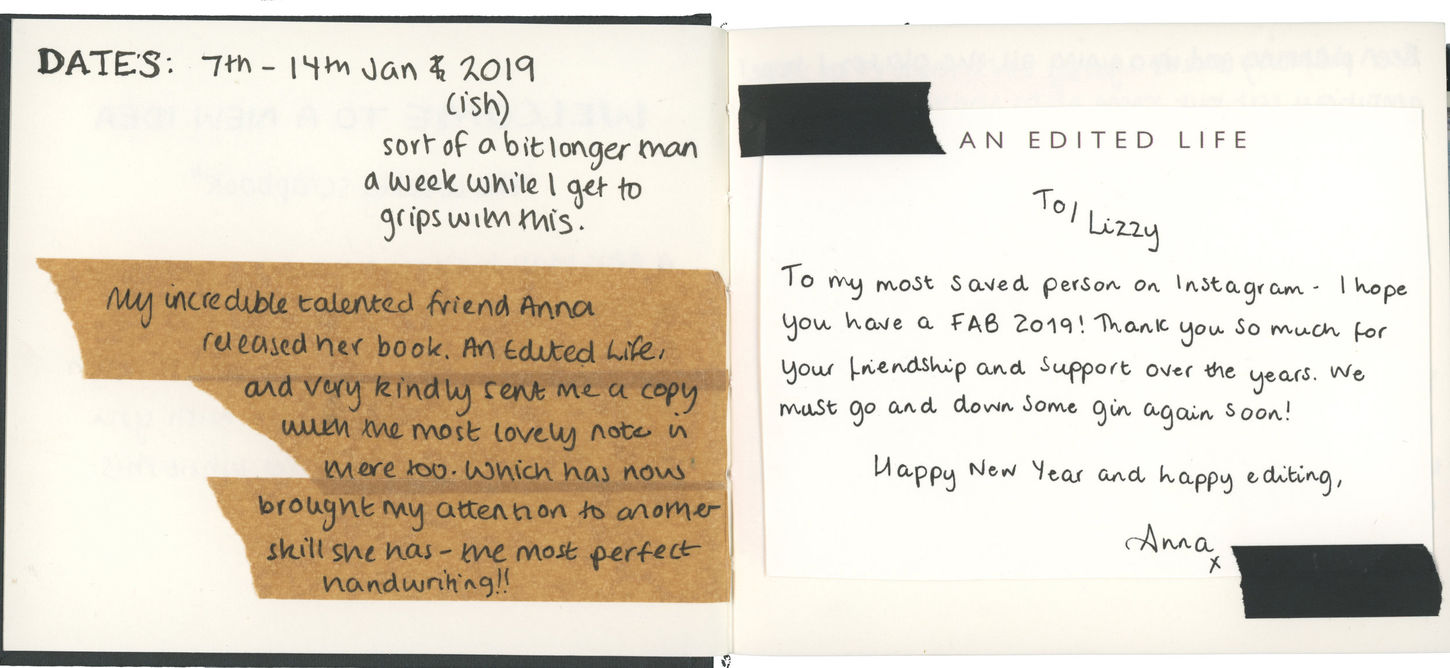 DATES: 7th - 14th Jan & 2019
(ish)
sort of a bit longer than
a week while I get to
grips with this.
My incredible talented friend Anna
released her book. An Edited Life,
and very kindly sent me a copy
with the most lovely note in
there too. Which has now
brought my attention to another
skill she has - the most perfect
handwriting!!
AN EDITED LIFE
To/ Lizzy
To my most saved person on Instagram - I hope
you have a FAB 2019! Thank you so much for
your friendship and support over the years. We
must go and down some gin again soon!
Happy New Year and happy editing,
Anna
x